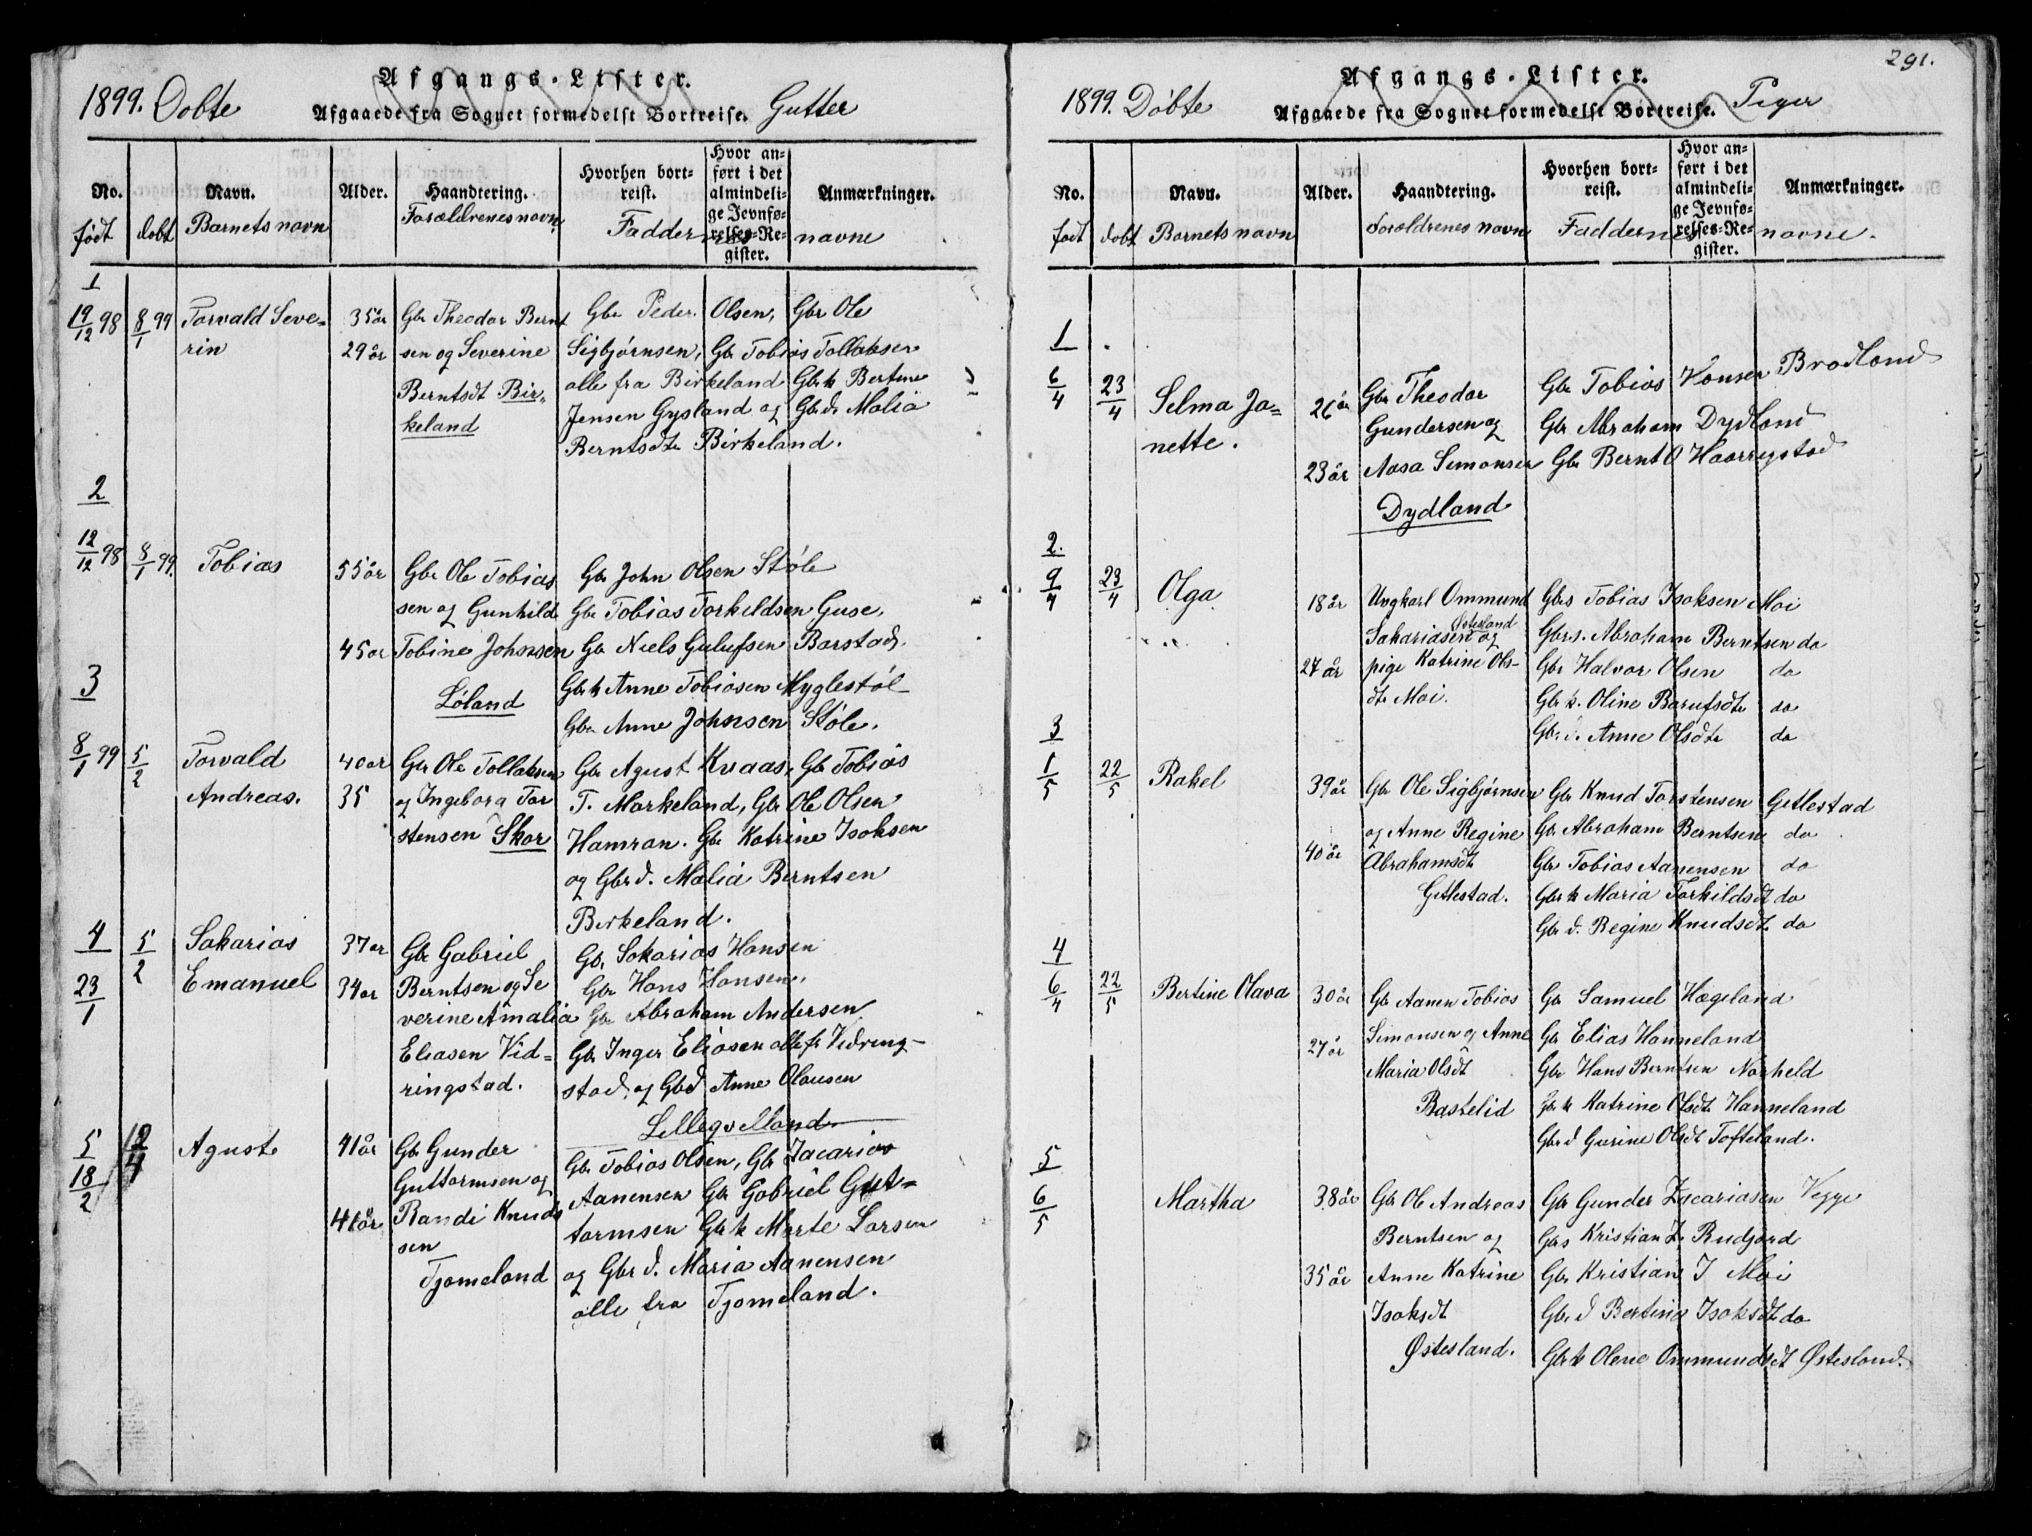 1899. Døbte
Afgangs-Lister.
Afgaaede fra Sognet formedelst Bortreise. Gutter
No. Navn. Alder. Haandtering. Hvorhen bortreist. Hvor anført i det almindelige Jevnførelses-Register. Anmærkninger.
født døbt Barnets navn Forældrenes navn Faddernes navne
1
19/12 98 8/1 99 Torvald Seve-
rin
35 år
29 år
Gbr Theodor Bernt
sen og Severine
Berntsdt Bir-
keland
Gbr Peder Olsen, Gbr Ole
Sigbjørnsen, Gbr Tobias Tollaksen
alle fra Birkeland Gbr k Bertine
Jensen Gysland og Gbr d. Malia
Berntsdte Birkeland.
2
12/12 98 8/1 99. Tobias
55 år
45 år
Gbr Ole Tobias
sen og Gunhild
Tobine Johnsen
Løland
Gbr John Olsen Støle
Gbr Tobias Torkeldsen Guse,
Gbr Niels Gulufsen Barstad,
Gbr k Anne Tobiasen Myglestøl
Gbr Anne Johnsen Støle.
3
8/1 99 5/2 Torvald
Andreas.
40 år
35
Gbr Ole Tollaksen
og Ingeborg Tor
stensen Skor
Gbr Agust Kvaas, Gbr Tobias
T. Markeland, Gbr Ole Olsen
Hamran. Gbr Katrine Isaksen
og Gbr d. Malia Berntsen
Birkeland.
4
23/1 5/2 Sakarias
Emanuel
37 år
34 år
Gbr Gabriel
Berntsen og Se
verine Amalia
Eliasen Vid=
ringstad.
Gbr Sakarias Hansen
Gbr Hans Hansen,
Gbr Abraham Andersen
Gbr Inger Eliasen alle fr Vidring-
stad, og Gbr d Anne Olausen
Lilleqvelland
5
18/2 12/4 Agust
41 år
41 år
Gbr Gunder
Guttormsen og
Randi Knud
sen
Tjomeland
Gbr Tobias Olsen, Gbr Zacarias
Aanensen Gbr Gabriel Gut-
tormsen Gbr k Marte Larsen
og Gbr d. Maria Aanensen
alle fra Tjomeland.
291.
1899. Døbte
Afgangs-Lister.
Afgaaede fra Sognet formedelst Bortreise. Piger
No. Navn. Alder. Haandtering. Hvorhen bortreist. Hvor anført i det almindelige Jevnførelses-Register. Anmærkninger.
født døbt Barnets navn Forældrenes navn Faddernes navne.
1
6/4 23/4 Selma Ja=
nette.
26 år
23 år
Gbr Theodor
Gundersen og
Aasa Simonsen
Dydland
Gbr Tobias Hansen Brådland
Gbr Abraham Dydland
Gbr Bernt O Haarrigstad
2.
9/4 23/4 Olga
18 år
27 år
Ungkarl Ommund
Sakariasen Østesland og
pige Katrine Ols-
dt Moi.
Gbrs Tobias Isaksen Moi
Gbrs. Abraham Berntsen do
Gbr Halvor Olsen do
Gbr k. Oline Barufsdt do
Gbr d. Anne Olsdt do
3
1/5 22/5 Rakel
39 år
40 år
Gbr Ole Sigbjørnsen
og Anne Regine
Abrahamsdt
Gitlestad.
Gbr Knud Torstensen Gitlestad
Gbr Abraham Berntsen do
Gbr Tobias Aanensen do
Gbr k Maria Torkildsdt do
Gbr d. Regine Knudsdt do
4
6/4 22/5 Bertine Olava
30 år
27 år
Gbr Aanen Tobias
Simonsen og Anne
Maria Olsdt
Bastelid
Gbr Samuel Hægeland
Gbr Elias Hanneland
Gbr Hans Berntsen Norheld
Gbr k Katrine Olsdt Hanneland
Gbr d Gurine Olsdt Tofteland.
5
6/5 Martha
38 år
35 år
Gbr Ole Andreas
Berntsen og
Anne Katrine
Isaksdt
Østesland.
Gbr Gunder Zacariasen Vegge
Gbrs Kristian Z. Rudjord
Gbr Kristian I Moi
Gbr d Bertina Isaksdt do
Gbr k Olene Ommundsdt Østesland.